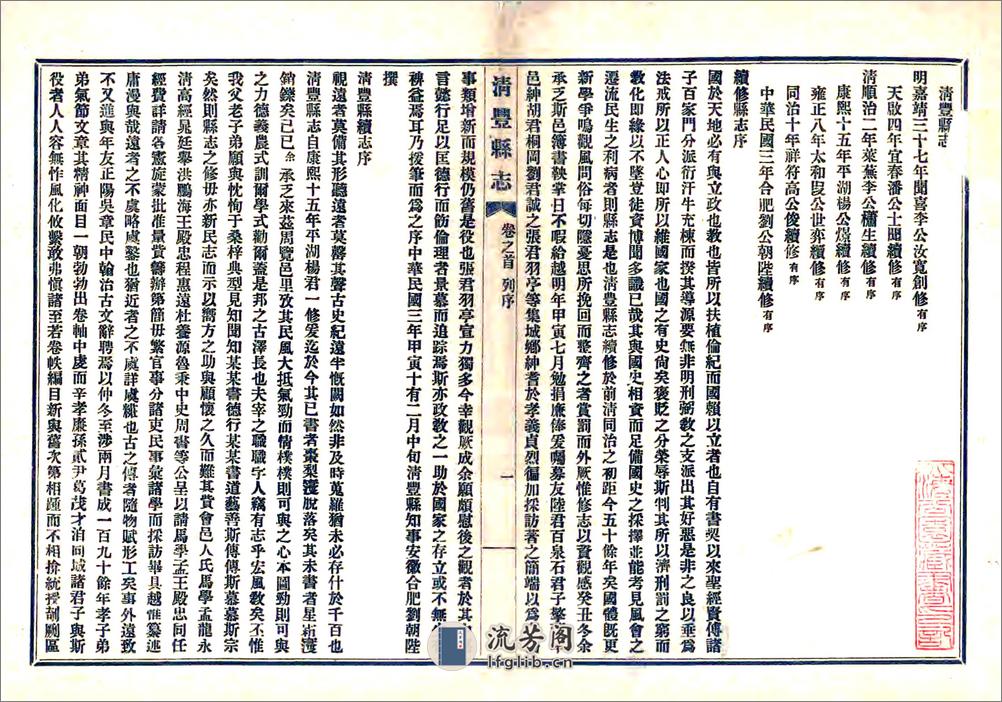 清豐縣志
明嘉靖三十七年聞喜李公汝寬創修有序
天啟四年宜春潘公士聞續修有序
清順治二年萊蕪李公櫹生續修有序
康熙十五年平湖楊公燝續修有序
雍正八年太和叚公世弈續修有序
同治十年祥符高公俊續修有序
中華民國三年合肥劉公朝陞續修有序
續修縣志序
國於天地必有與立政也教也皆所以扶植倫紀而國賴以立者也自有書契以來聖經賢傳諸
子百家門分派衍汗牛充棟而揆其導源要無非明刑弼教之支派出其好惡是非之良以垂爲
法戒所以正人心即所以維國家也國之有史尙矣褒貶之分榮辱斯判其所以濟刑罰之窮而
教化即緣以不墜豈徒資博聞多識已哉其與國史相資而足備國史之採擇並能考見風會之
遷流民生之利病者則縣志是也清豊縣志續修於前清同治之初距今五十餘年矣國體旣更
新學爭鳴觀風問俗每切隱憂思所挽回而整齊之者賞罰而外厥惟修志以資觀感癸丑冬余
承乏斯邑簿書鞅掌日不暇給越明年甲寅七月勉捐廉俸爰囑募友陸君百泉石君子擎
邑紳胡君桐岡劉君誠之張君羽亭等集城鄉紳耆於孝義貞烈徧加採訪著之簡端以爲
清豐縣志
卷之首 列序
一
事類增新而規模仍舊是役也張君羽亭宣力獨多今幸觀厥成余願頗慰後之觀者於其
言懿行足以匡德行而飭倫理者景慕而追踪焉斯亦政教之一助於國家之存立或不無
裨益焉耳乃援筆而爲之序中華民國三年甲寅十有二月中旬清豐縣知事安徽合肥劉朝陞
撰
清豐縣續志序
視遠者莫備其形聽遠者莫罄其聲古史紀遠半慨闕如然非及時蒐羅猶未必存什於千百也
清豐縣志自康熙十五年平湖楊君一修爰迄於今其已書者棗梨寖脫落矣其未書者星霜寖
銷鑠矣己巳余承乏來莅周覽邑里攷其民風大抵氣勁而情樸樸則可與之心本圖勁則可與
之力德義農式訓爾學式勸爾蓋是邦之古澤長也夫宰之職職字人竊有志乎宏風教矣丕惟
我父老子弟願與忱恂于桑梓典型見知聞知某某書德行某某書道藝善斯傳斯慕慕斯宗
矣然則縣志之修毋亦新民志而示以嚮方之助與顧懷之久而難其貲會邑人氏馬學孟龍永
清高經晁廷舉洪鵬海王殿忠程惠遠杜養源魯秉中史周書等公呈以請馬學孟王殿忠同任
經費詳請各憲旋蒙批准量貲籌辦第簡毋繁官事分諸吏民事彙諸學而採訪畢具越惟纂述
庸漫與哉遠者之不虞略虞鑿也猶近者之不虞詳虞緟也古之傳者隨物賦形工矣事外遠致
不又進與年友正陽吳章民中翰治古文辭聘焉以仲冬至涉兩月書成一百九十餘年孝子弟
弟氣節文章其精神面目一朝勃勃出卷軸中虔而辛孝廉孫貳尹葛茂才洎同城諸君子與斯
役者人人容無怍風化攸繫敢弗愼諸至若卷帙編目新與舊次第相踵而不相揜統授剞劂區
流芳阁
lfglib.cn